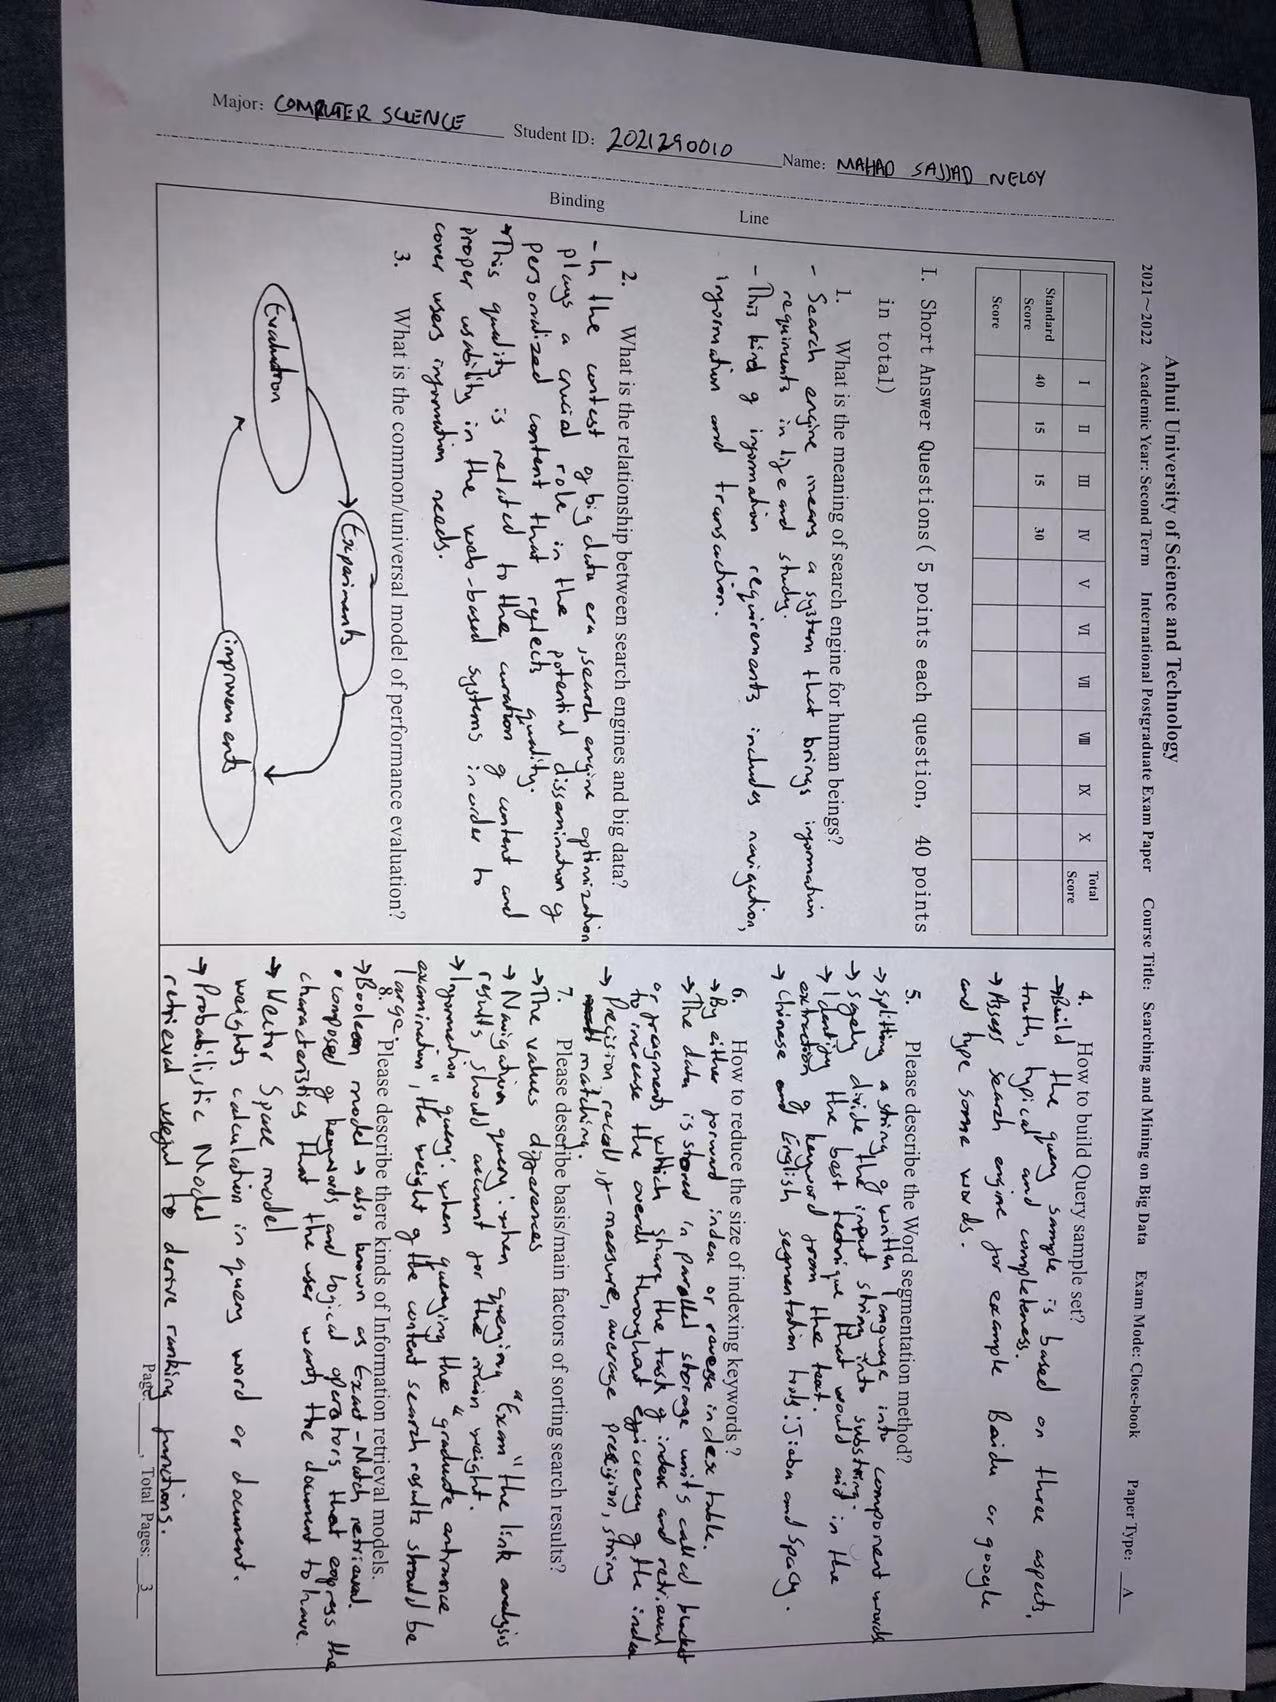 Anhui University of Science and Technology
2021~2022 Academic Year: Second Term International Postgraduate Exam Paper Course Title: Searching and Mining on Big Data Exam Mode: Close-book Paper Type: A
Major: COMPUTER SCIENCE Student ID: 2021290010 Name: MAHAD SAJJAD NELOY
Binding Line
I II III IV V VI VII VIII IX X Total Score
Standard Score 40 15 15 30
Score
I. Short Answer Questions( 5 points each question, 40 points
in total)
1. What is the meaning of search engine for human beings?
- Search engine means a system that brings information
requiments in life and study.
- This kind of information requirements includes navigation,
information and transaction.
2. What is the relationship between search engines and big data?
- In the contest of big data era, search engine optimization
plays a crucial role in the potential dissemination of
personalized content that reflects quality.
This quality is related to the curation of content and
proper usability in the web-based systems in order to
cover users information needs.
3. What is the common/universal model of performance evaluation?
Experiments
Evaluation
improvements
4. How to build Query sample set?
→ Build the query sample is based on three aspects,
truth, typical and completeness.
→ Assess search engine for example Baidu or google
and type some words.
5. Please describe the Word segmentation method?
→ splitting a string of written language into component words
→ safely divide the input string into substring.
→ Identify the best technique that would aid in the
extraction of keyword from the text.
→ Chinese and English segmentation tools: Jieba and Spacy.
6. How to reduce the size of indexing keywords ?
→ By either forward index or reverse index table.
→ The data is stored in parallel storage units called bucket
or fragments which share the task of index and retrieval
to increase the overall throughout efficiency of the index
→ Precision, recall, f-measure, average precision, string
matching.
7. Please describe basis/main factors of sorting search results?
→ The values differences
→ Navigation query: when querying "Exam" the link analysis
results should account for the main weight.
→ Information query: when querying the "graduate entrance
examination", the weight of the content search results should be
large.
8. Please describe there kinds of Information retrieval models.
→ Boolean model → also known as Exact-Match retrieval.
• composed of keywords and logical operators that express the
characteristics that the user wants the document to have.
→ Vector Space model
weights calculation in query word or document.
→ Probabilistic Model
retrieval useful to derive ranking functions.
Page: , Total Pages: 3